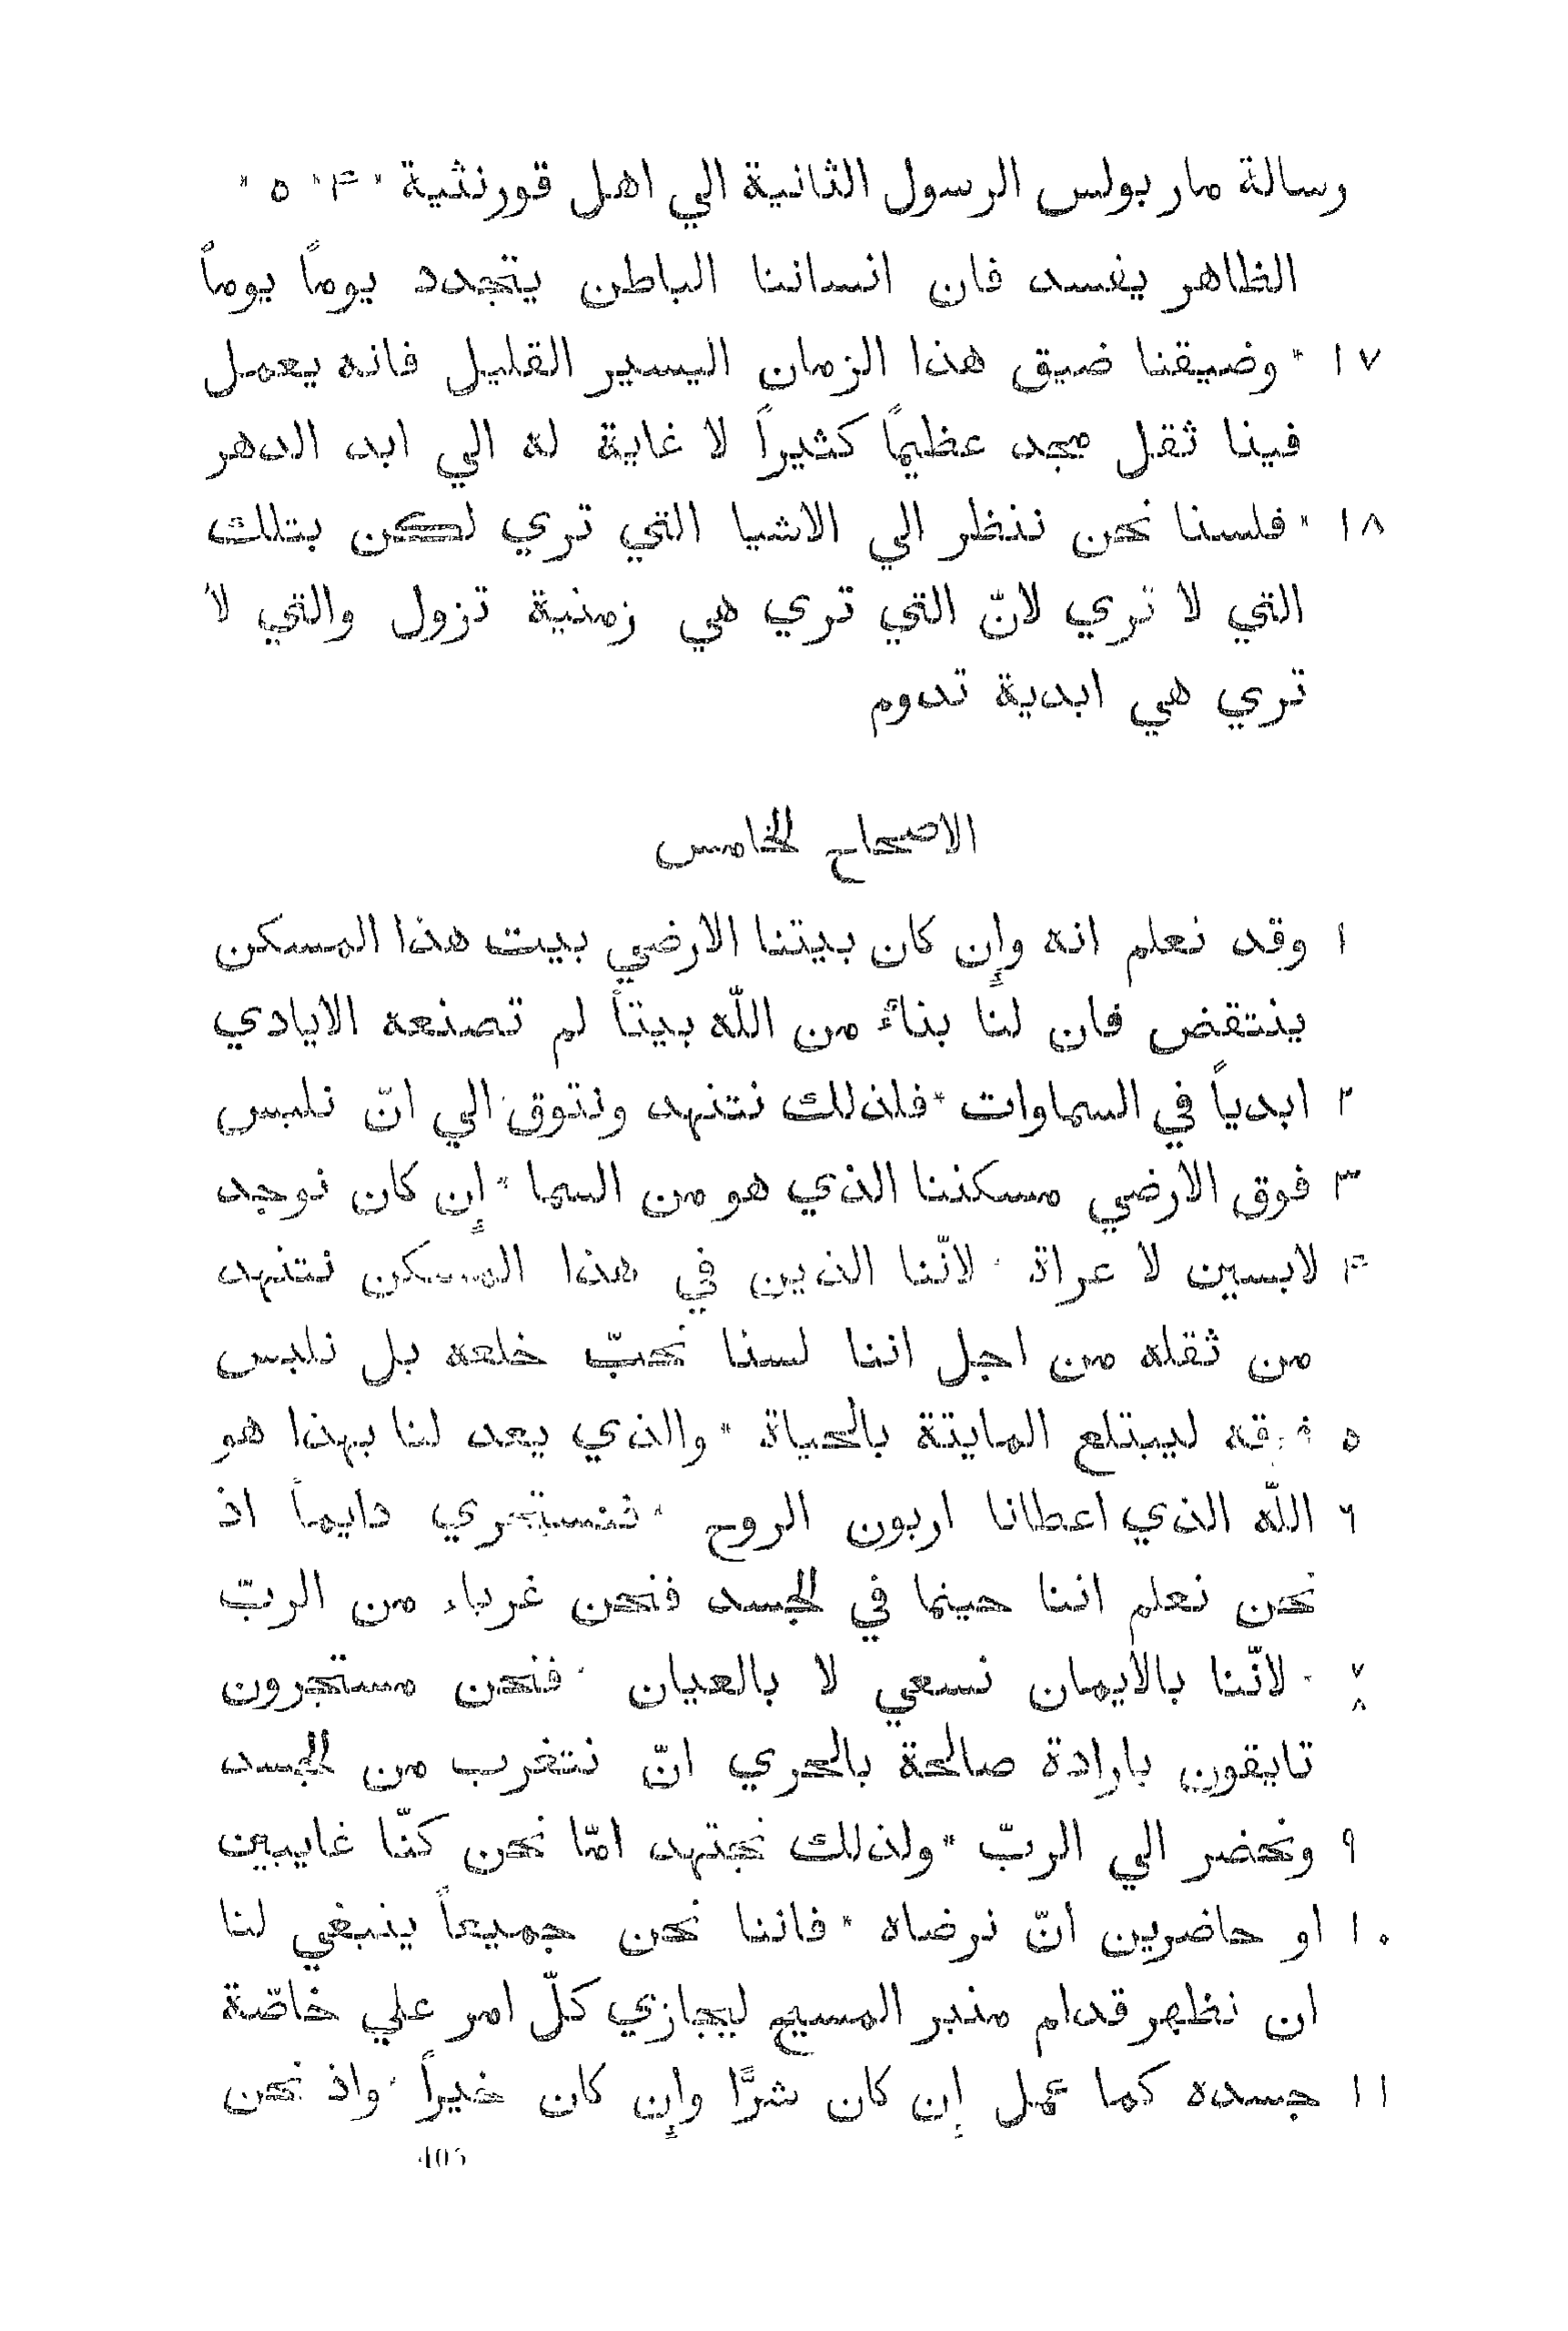 رسالة مار بولس الرسول الثانية الي اهل قورنثية * ۴ * ٥ *
الظاهر يفسد فان انساننا الباطن يتجدد يوماً يوماً
١٧ * وضيقنا ضيق هذا الزمان اليسير القليل فانه يعمل
فينا ثقل مجد عظيمًا كثيراً لا غاية له الي ابد الدهر
١٨ * فلسنا نحن ننظر الي الاشيا التي تري لكن بتلك
التي لا تري لانّ التي تري هي زمنية تزول والتي لا
تري هي ابدية تدوم
الاصحاح الخامس
١ وقد نعلم انه وإن كان بيتنا الارضي بيت هذا المسكن
ينتقض فان لنا بناءً من اللّه بيتاً لم تصنعه الايادي
٢ ابدياً في السماوات * فلذلك نتنهد ونتوق الي انّ نلبس
٣ فوق الارضي مسكننا الذي هو من السما * إن كان نوجد
۴ لابسين لا عراة * لانّنا الذين في هذا المسكن نتنهد
من ثقله من اجل اننا لسنا نحبّ خلعه بل نلبس
٥ فوقه ليبتلع المايتة بالحياة * والذي يعد لنا بهذا هو
٦ اللّه الذي اعطانا اربون الروح * فنستجري دايماً اذ
نحن نعلم اننا حينما في الجسد فنحن غرباء من الربّ
٧ * لانّنا بالايمان نسعي لا بالعيان * فنحن مستجرون
٨
تايقون بارادة صالحة بالحري انّ نتغرب من الجسد
٩ ونحضر الي الربّ * ولذلك نجتهد امّا نحن كنّا غايبين
١٠ او حاضرين انّ نرضاه * فاننا نحن جميعاً ينبغي لنا
ان نظهر قدام منبر المسيح ليجازي كلّ امر علي خاصّة
١١ جسده كما عمل إن كان شرًّا وإن كان خيراً * واذ نحن
405